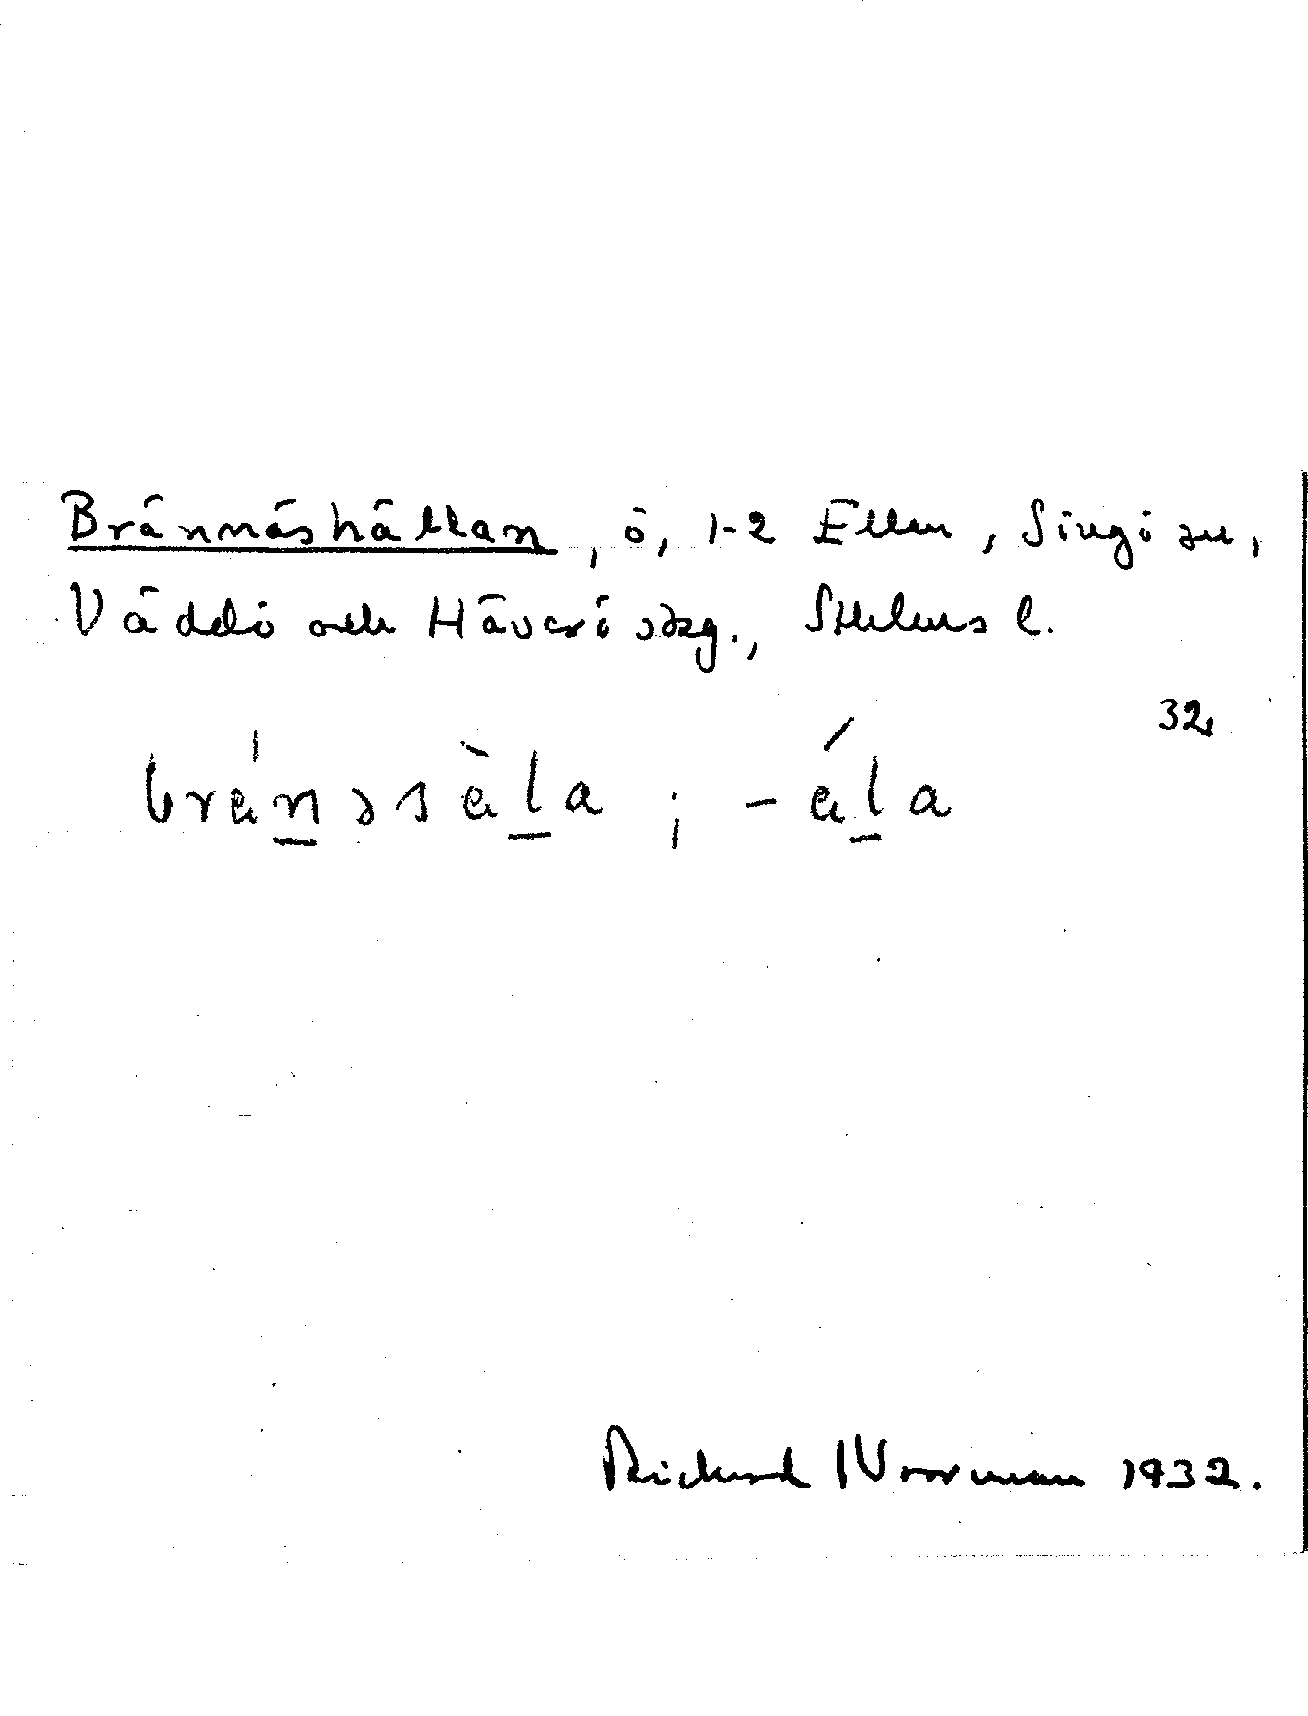 Brännäshällan, ö, 1-2 Ellen, Singö sn,
Väddö och Häverö skg., Sthlms l.
32
brä́n̲əsä̀l̲a ; -ä́l̲a
Rickard Norrman 1932.